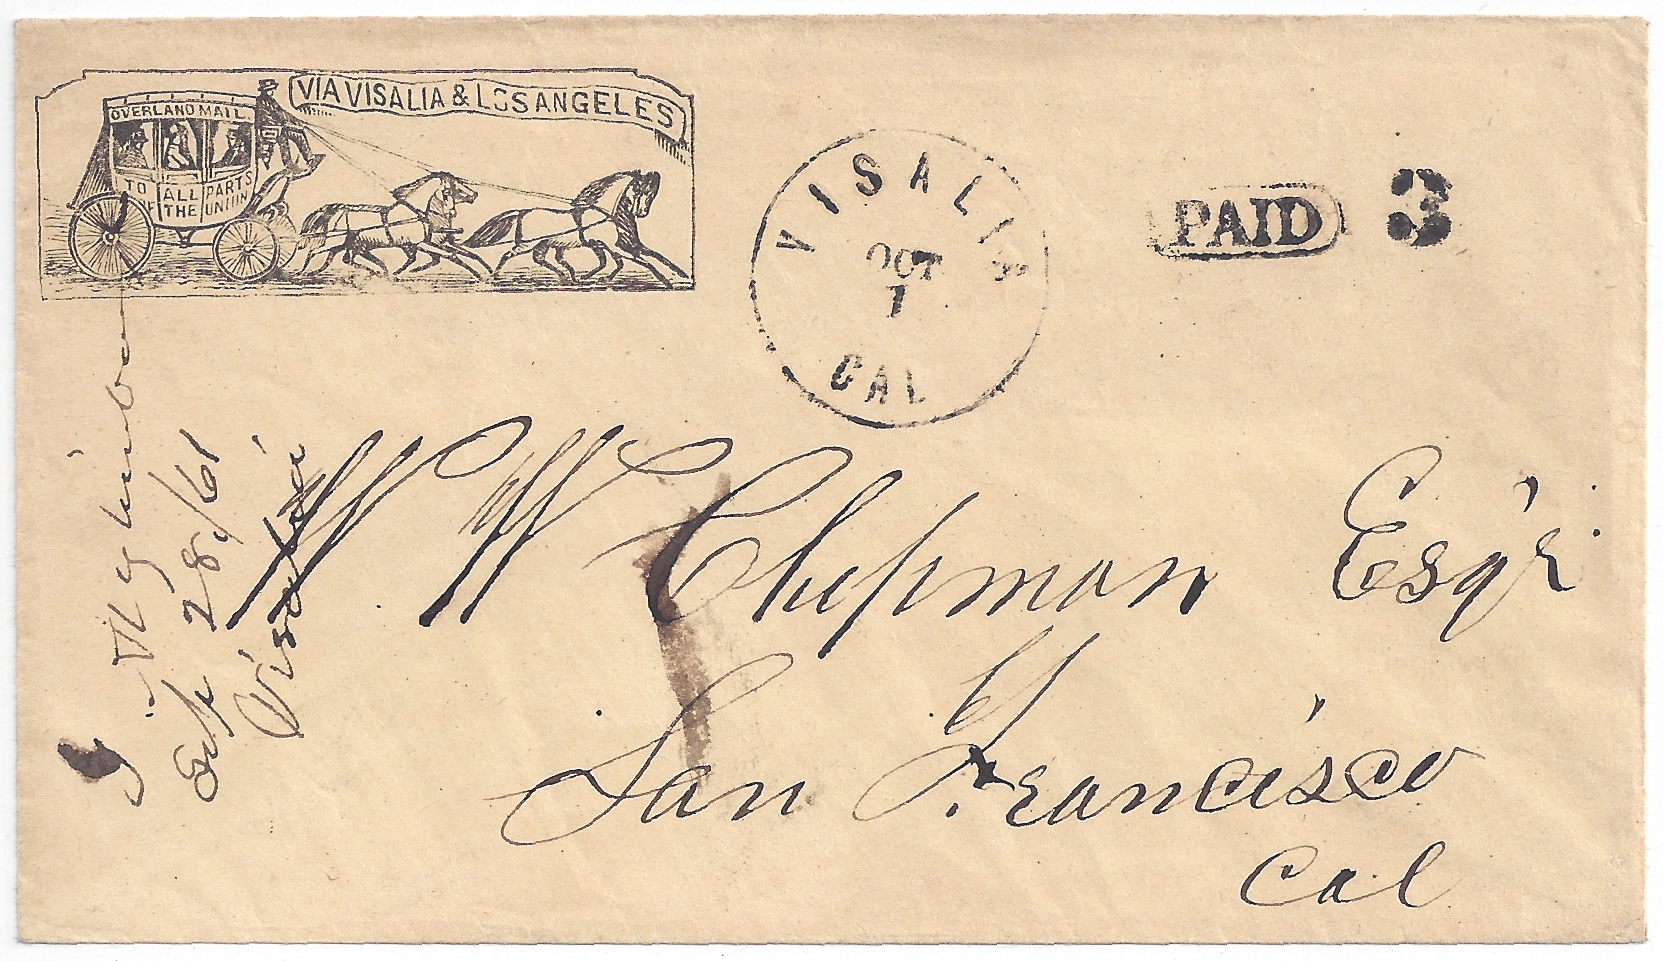 VIA VISALIA & LOS ANGELES
OVERLAND MAIL.
TO ALL PARTS
OF THE UNION
VISALIA
OCT
1
CAL
PAID 3
W W Chapman Esqr
San Francisco
Cal
Sep 28/61
Visalia